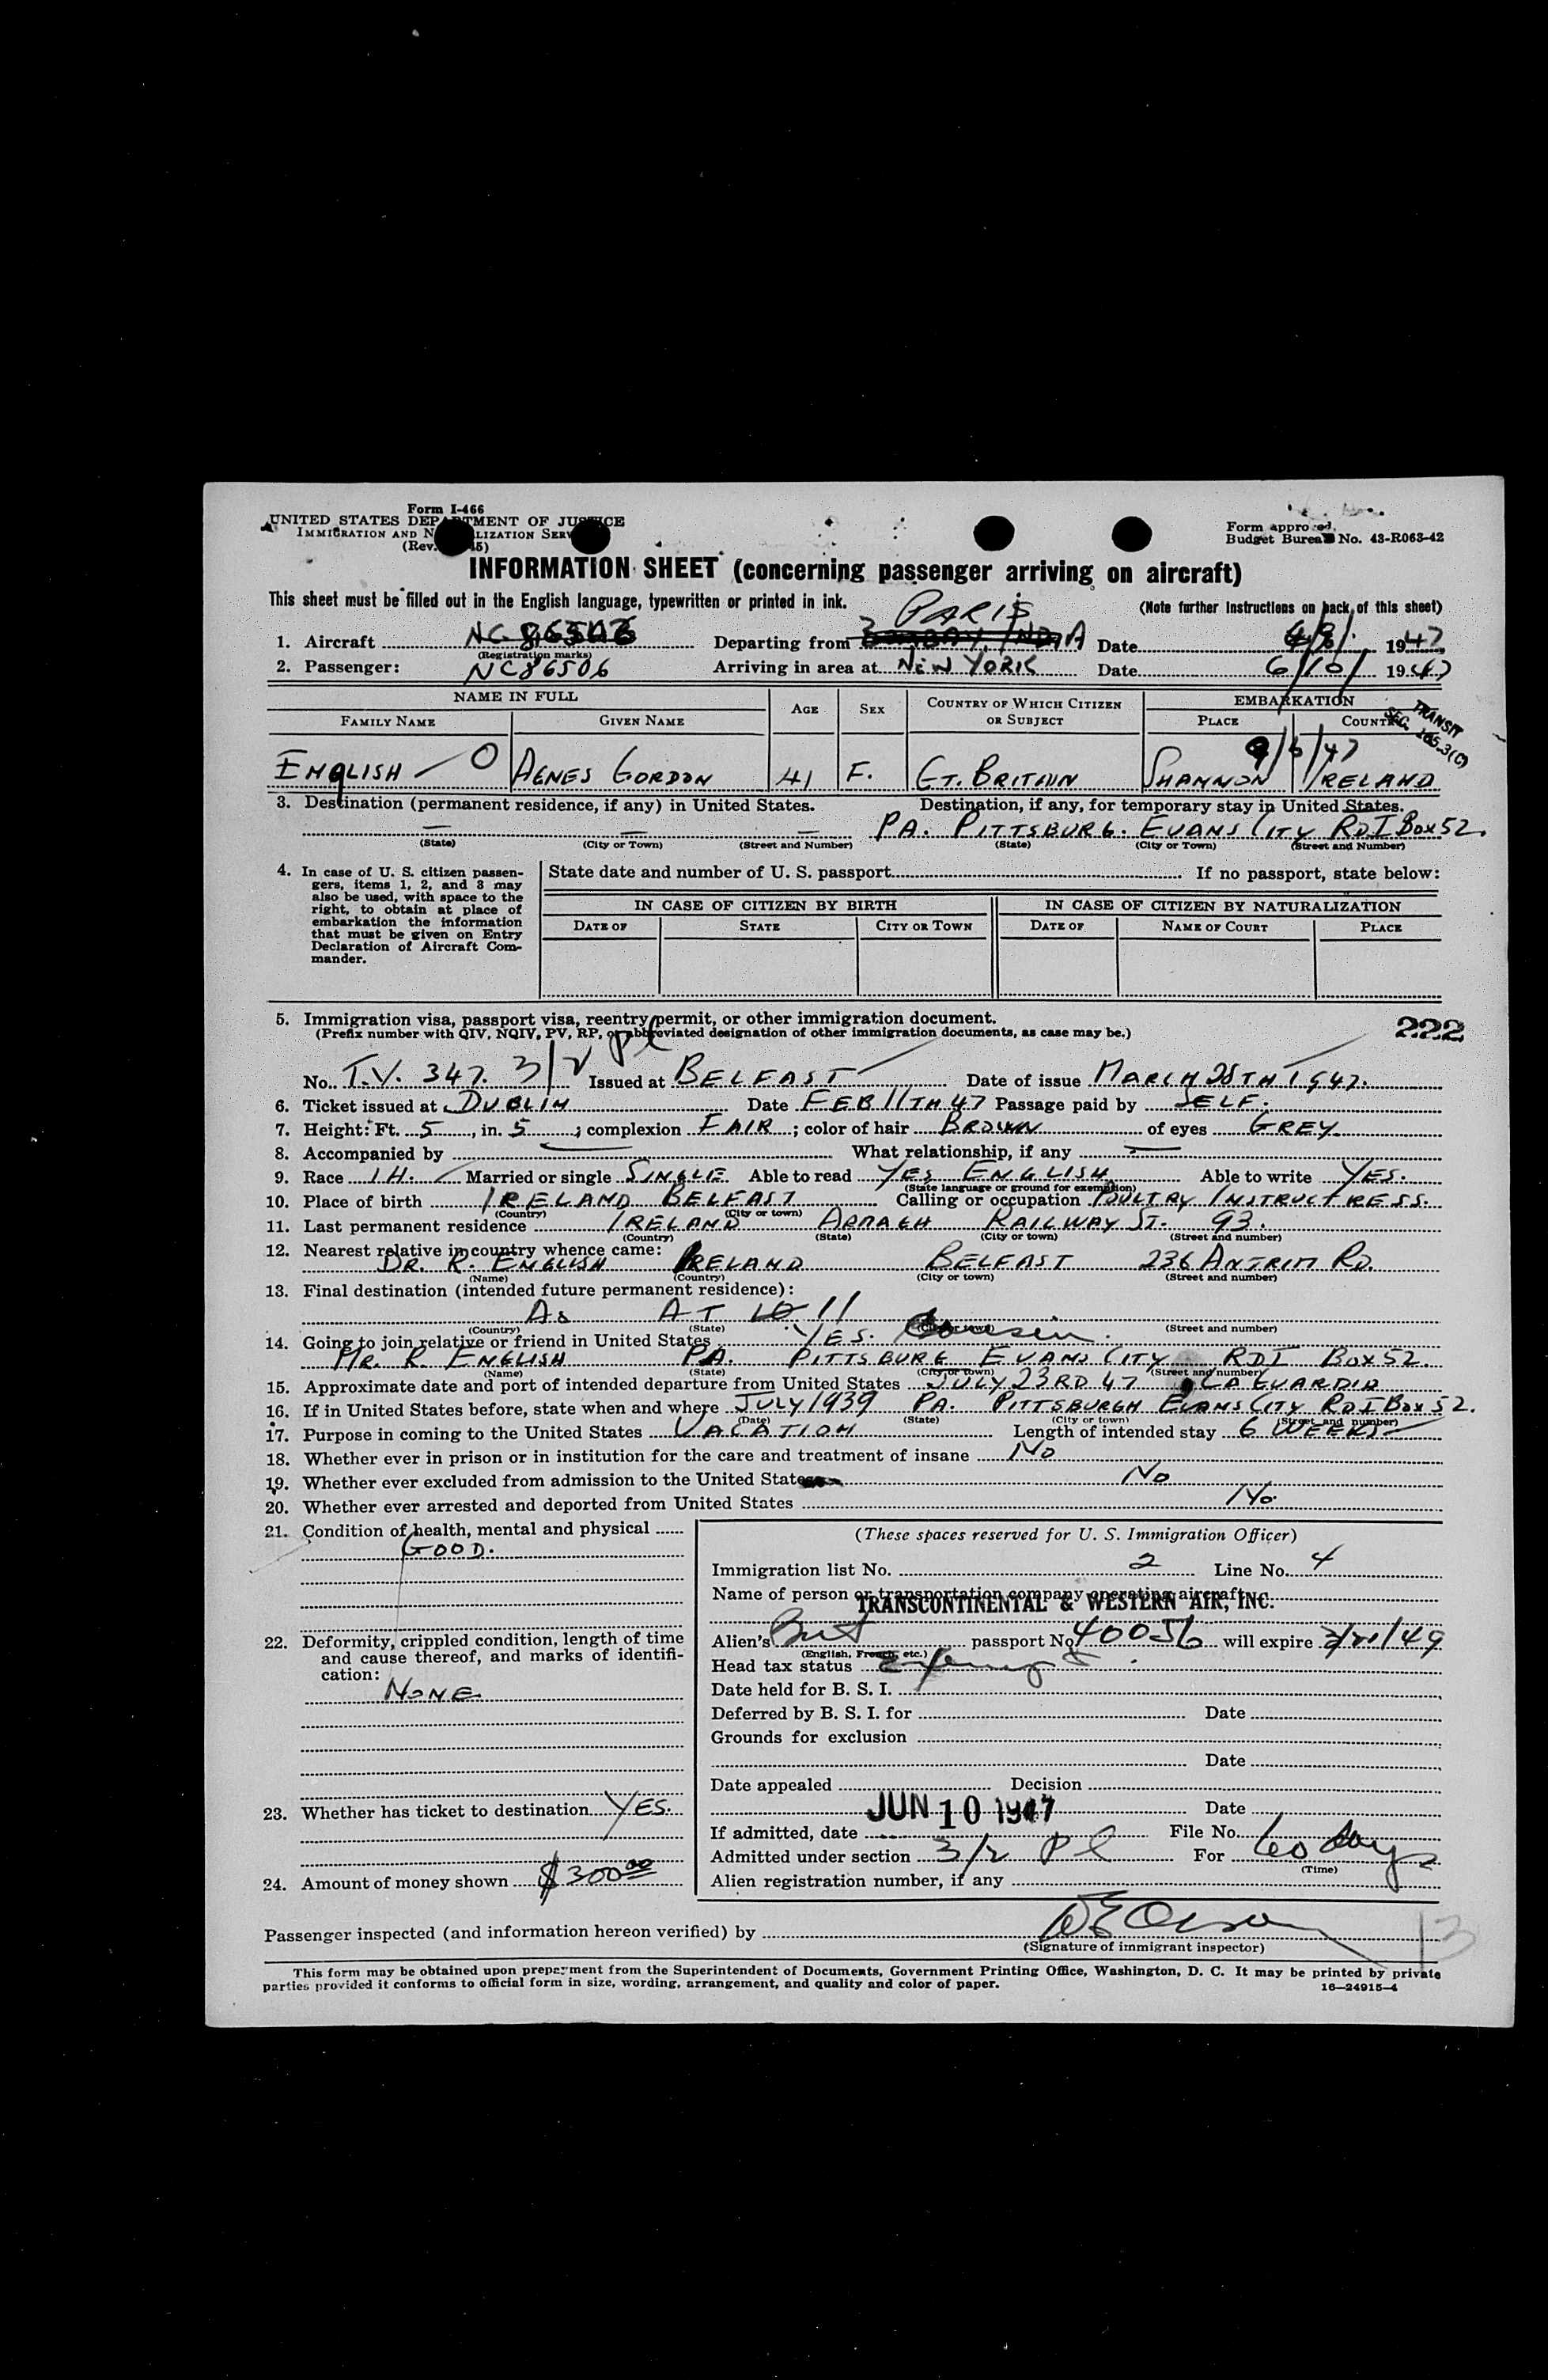 Form I-466
UNITED STATES DEPARTMENT OF JUSTICE
IMMIGRATION AND NATURALIZATION SERVICE
(Rev. 5)
Form approved.
Budget Bureau No. 43-R063-42
INFORMATION SHEET (concerning passenger arriving on aircraft)
This sheet must be filled out in the English language, typewritten or printed in ink.
(Note further instructions on back of this sheet)
PARIS
1. Aircraft NC 86506 Departing from BOMBAY, INDIA Date 1947
(Registration marks)
2. Passenger: NC86506 Arriving in area at NEW YORK Date 6/10/ 1947
NAME IN FULL AGE SEX COUNTRY OF WHICH CITIZEN OR SUBJECT EMBARKATION
FAMILY NAME GIVEN NAME PLACE COUNTRY
TRANSIT
SEC. 165.3(C)
9/6/47
ENGLISH O AGNES GORDON 41 F. GT. BRITAIN SHANNON IRELAND
3. Destination (permanent residence, if any) in United States. Destination, if any, for temporary stay in United States.
— — — PA. PITTSBURG. EVANS CITY RDI BOX 52.
(State) (City or Town) (Street and Number) (State) (City or Town) (Street and Number)
4. In case of U. S. citizen passengers, items 1, 2, and 3 may also be used, with space to the right, to obtain at place of embarkation the information that must be given on Entry Declaration of Aircraft Commander.
State date and number of U. S. passport If no passport, state below:
IN CASE OF CITIZEN BY BIRTH IN CASE OF CITIZEN BY NATURALIZATION
DATE OF STATE CITY OR TOWN DATE OF NAME OF COURT PLACE
5. Immigration visa, passport visa, reentry permit, or other immigration document.
(Prefix number with QIV, NQIV, PV, RP, or abbreviated designation of other immigration documents, as case may be.)
222
No. T.V. 347. 3/2 pl Issued at BELFAST Date of issue MARCH 28TH 1947.
6. Ticket issued at DUBLIN Date FEB 11TH 47 Passage paid by SELF.
7. Height: Ft. 5, in. 5; complexion FAIR; color of hair BROWN of eyes GREY
8. Accompanied by — What relationship, if any —
9. Race IH. Married or single SINGLE Able to read YES ENGLISH Able to write YES.
(State language or ground for exemption)
10. Place of birth IRELAND BELFAST Calling or occupation POULTRY INSTRUCTRESS.
(Country) (City or town)
11. Last permanent residence IRELAND ARMAGH RAILWAY ST. 93.
(Country) (State) (City or town) (Street and number)
12. Nearest relative in country whence came:
DR. R. ENGLISH IRELAND BELFAST 236 ANTRIM RD.
(Name) (Country) (City or town) (Street and number)
13. Final destination (intended future permanent residence):
AS AT 10 11
(Country) (State) (City or town) (Street and number)
14. Going to join relative or friend in United States YES. Cousin.
MR. R. ENGLISH PA. PITTSBURG EVANS CITY RDI BOX 52.
(Name) (State) (City or town) (Street and number)
15. Approximate date and port of intended departure from United States JULY 23RD 47 LA GUARDIA
16. If in United States before, state when and where JULY 1939 PA. PITTSBURGH EVANS CITY RDI BOX 52.
(Date) (State) (City or town) (Street and number)
17. Purpose in coming to the United States VACATION Length of intended stay 6 WEEKS
18. Whether ever in prison or in institution for the care and treatment of insane NO
19. Whether ever excluded from admission to the United States NO
20. Whether ever arrested and deported from United States NO.
21. Condition of health, mental and physical
GOOD.
22. Deformity, crippled condition, length of time and cause thereof, and marks of identification:
NONE
23. Whether has ticket to destination YES.
24. Amount of money shown $300.00
(These spaces reserved for U. S. Immigration Officer)
Immigration list No. 2 Line No. 4
Name of person or transportation company operating aircraft
TRANSCONTINENTAL & WESTERN AIR, INC.
Alien's Brit passport No. 40056 will expire 49
(English, French, etc.)
Head tax status Exempt
Date held for B. S. I.
Deferred by B. S. I. for Date
Grounds for exclusion
Date
Date appealed Decision
JUN 10 1947 Date
If admitted, date File No.
Admitted under section 3/2 pl For 60 days
(Time)
Alien registration number, if any
Passenger inspected (and information hereon verified) by
(Signature of immigrant inspector)
13
This form may be obtained upon prepayment from the Superintendent of Documents, Government Printing Office, Washington, D. C. It may be printed by private
parties provided it conforms to official form in size, wording, arrangement, and quality and color of paper.
16—24915-4